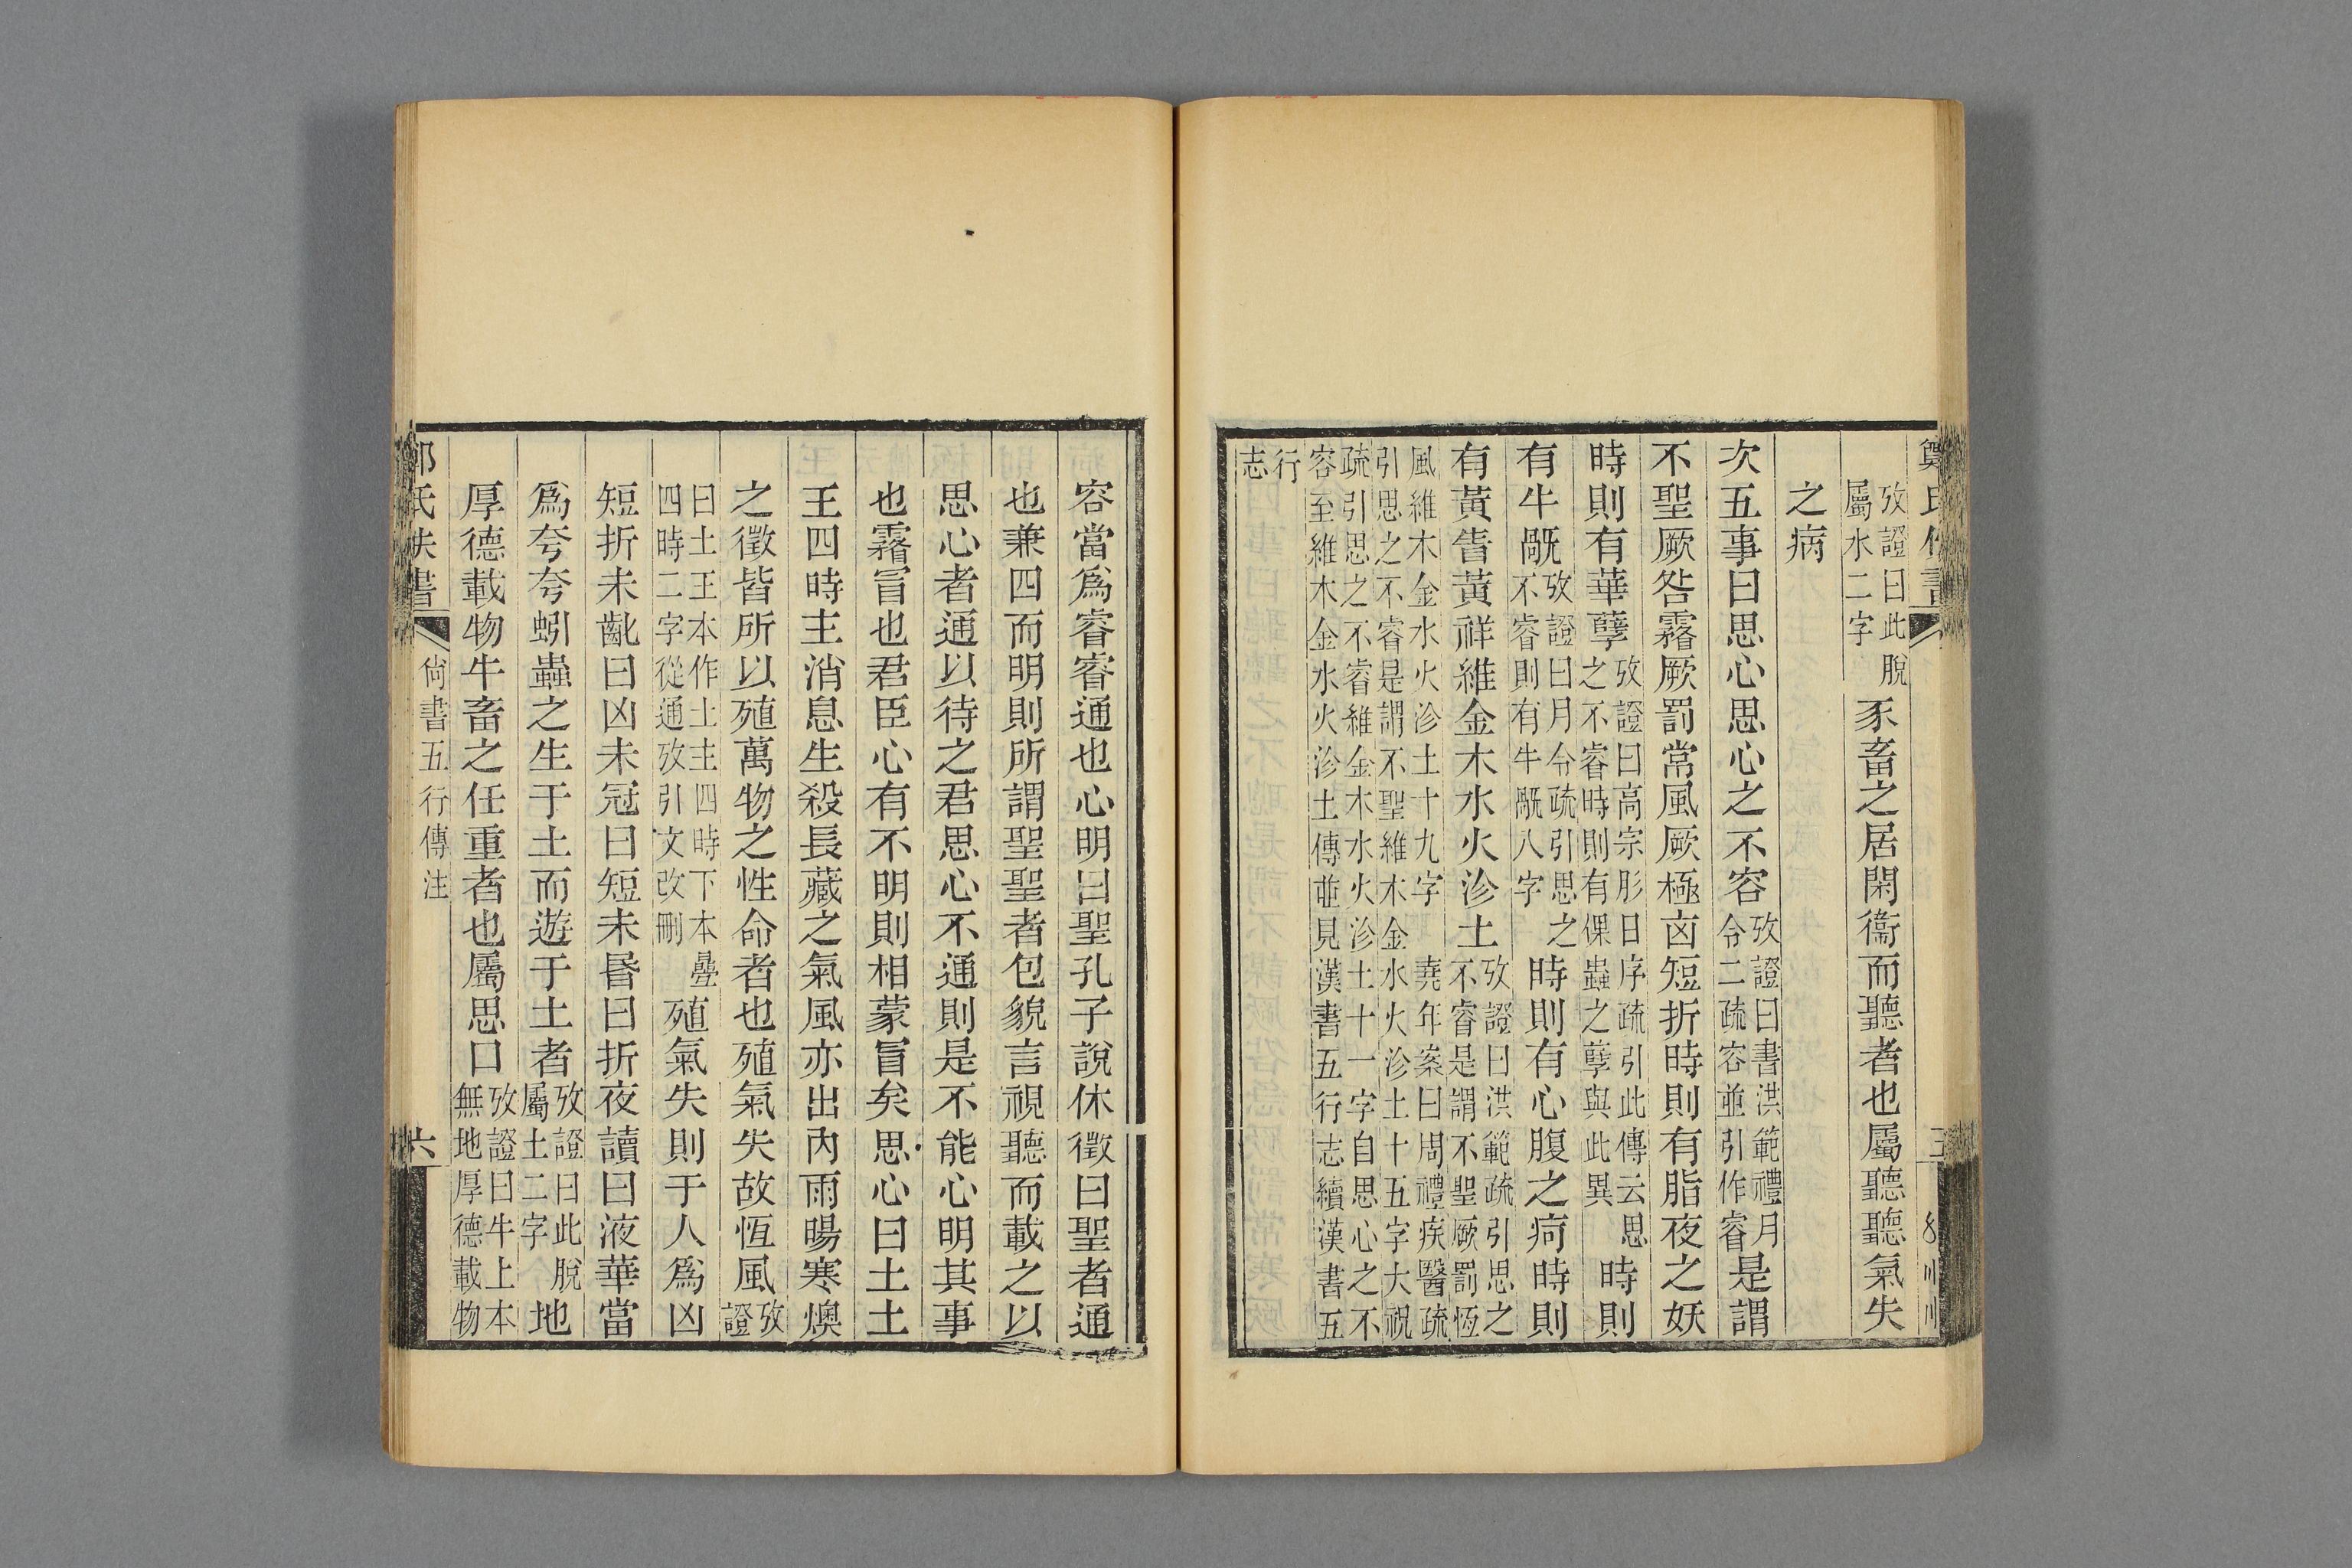 攷證曰此脫
屬水二字
豕畜之居閑衞而聽者也屬聽聽氣失
之病
次五事曰思心思心之不容
攷證曰書洪範禮月
令二疏容並引作睿
是謂
不聖厥咎霿厥罰常風厥極凶短折時則有脂夜之妖
時則有華孽
攷證曰高宗肜日序疏引此傳云思
之不睿時則有倮蟲之孽與此異
時則
有牛𤯝
攷證曰月令疏引思之
不睿則有牛𤯝八字
時則有心腹之痾時則
有黃眚黃祥維金木水火沴土
攷證曰洪範疏引思之
不睿是謂不聖厥罰恆
風維木金水火沴土十九字 堯年案曰周禮疾醫疏
引思之不睿是謂不聖維木金水火沴土十五字大祝
疏引思之不睿維金木水火沴土十一字自思心之不
容至維木金水火沴土傳並見漢書五行志續漢書五
行
志
容當爲睿睿通也心明曰聖孔子說休徵曰聖者通
也兼四而明則所謂聖聖者包貌言視聽而載之以
思心者通以待之君思心不通則是不能心明其事
也霿冒也君臣心有不明則相蒙冒矣思心曰土土
王四時主消息生殺長藏之氣風亦出內雨暘寒燠
之徵皆所以殖萬物之性命者也殖氣失故恆風
攷
證
曰土王本作土主四時下本㬪
四時二字從通攷引文改刪
殖氣失則于人爲凶
短折未齔曰凶未冠曰短未昬曰折夜讀曰液華當
爲夸夸蚓蟲之生于土而遊于土者
攷證曰此脫
屬土二字
地
厚德載物牛畜之任重者也屬思口
攷證曰牛上本
無地厚德載物
氏佚書
尙書五行傳注
六